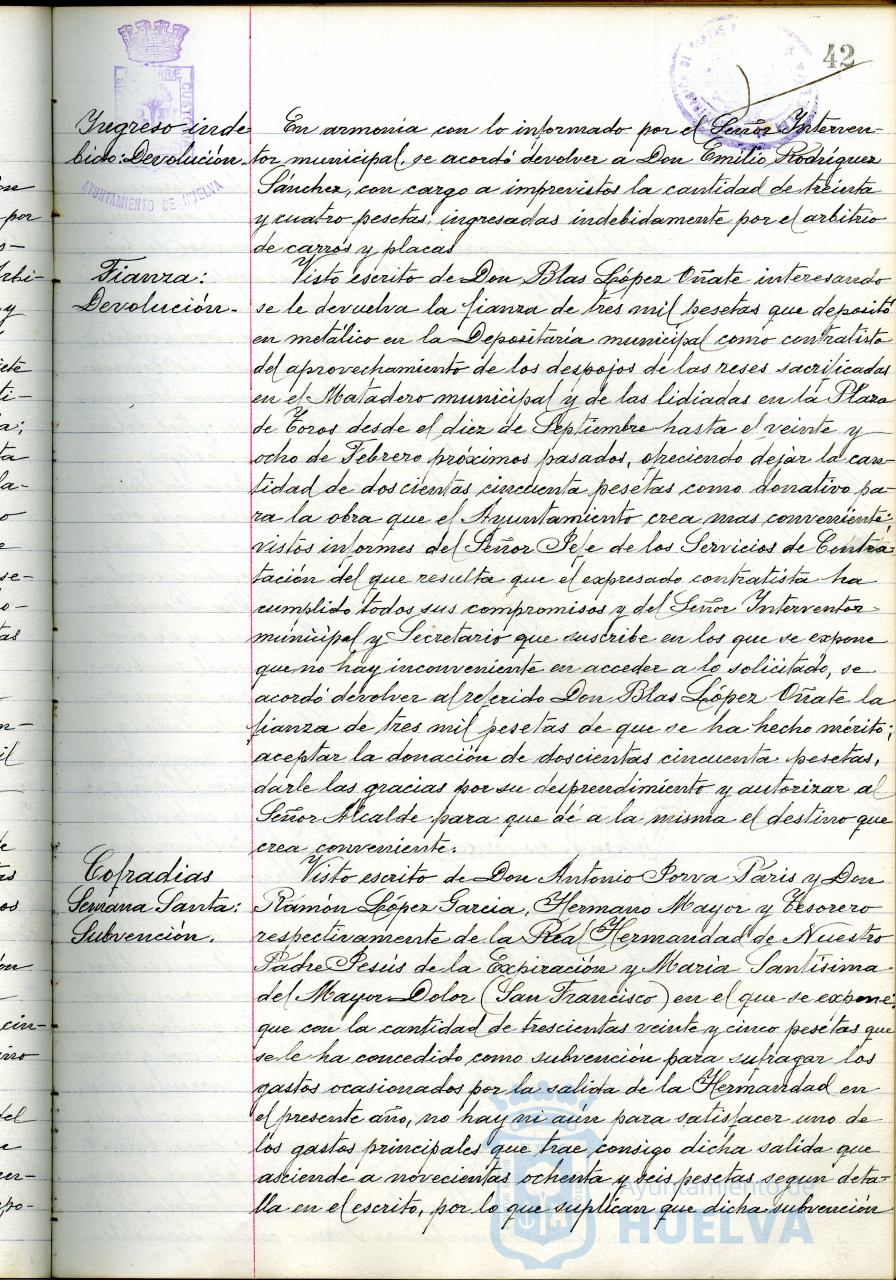 42
AYUNTAMIENTO DE HUELVA
Ingreso inde-
bido: Devolución.
En armonía con lo informado por el Señor Interven-
tor municipal, se acordó devolver a Don Emilio Rodríguez
Sánchez, con cargo a imprevistos la cantidad de treinta
y cuatro pesetas, ingresadas indebidamente por el arbitrio
de carros y placas
Fianza:
Devolución.-
Visto escrito de Don Blas López Oñate interesando
se le devuelva la fianza de tres mil pesetas que depositó
en metálico en la Depositaría municipal como contratista
del aprovechamiento de los despojos de las reses sacrificadas
en el Matadero municipal y de las lidiadas en la Plaza
de Toros desde el diez de Septiembre hasta el veinte y
ocho de Febrero próximos pasados, ofreciendo dejar la can-
tidad de doscientas cincuenta pesetas como donativo pa-
ra la obra que el Ayuntamiento crea mas conveniente;
vistos informes del Señor Jefe de los Servicios de Contra-
tación del que resulta que el expresado contratista ha
cumplido todos sus compromisos y del Señor Interventor
municipal y Secretario que suscribe en los que se expone
que no hay inconveniente en acceder a lo solicitado, se
acordó devolver al referido Don Blas López Oñate la
fianza de tres mil pesetas de que se ha hecho mérito;
aceptar la donación de doscientas cincuenta pesetas,
darle las gracias por su desprendimiento y autorizar al
Señor Alcalde para que dé a la misma el destino que
crea conveniente.
Cofradias
Semana Santa:
Subvención.
Visto escrito de Don Antonio Jorva Paris y Don
Ramón López Garcia, Hermano Mayor y Tesorero
respectivamente de la Real Hermandad de Nuestro
Padre Jesús de la Expiración y Maria Santísima
del Mayor Dolor (San Francisco) en el que se expone
que con la cantidad de trescientas veinte y cinco pesetas que
se le ha concedido como subvención para sufragar los
gastos ocasionados por la salida de la Hermandad en
el presente año, no hay ni aún para satisfacer uno de
los gastos principales que trae consigo dicha salida que
asciende a novecientas ochenta y seis pesetas segun deta-
lla en el escrito, por lo que suplican que dicha subvención
Ayuntamiento de
HUELVA